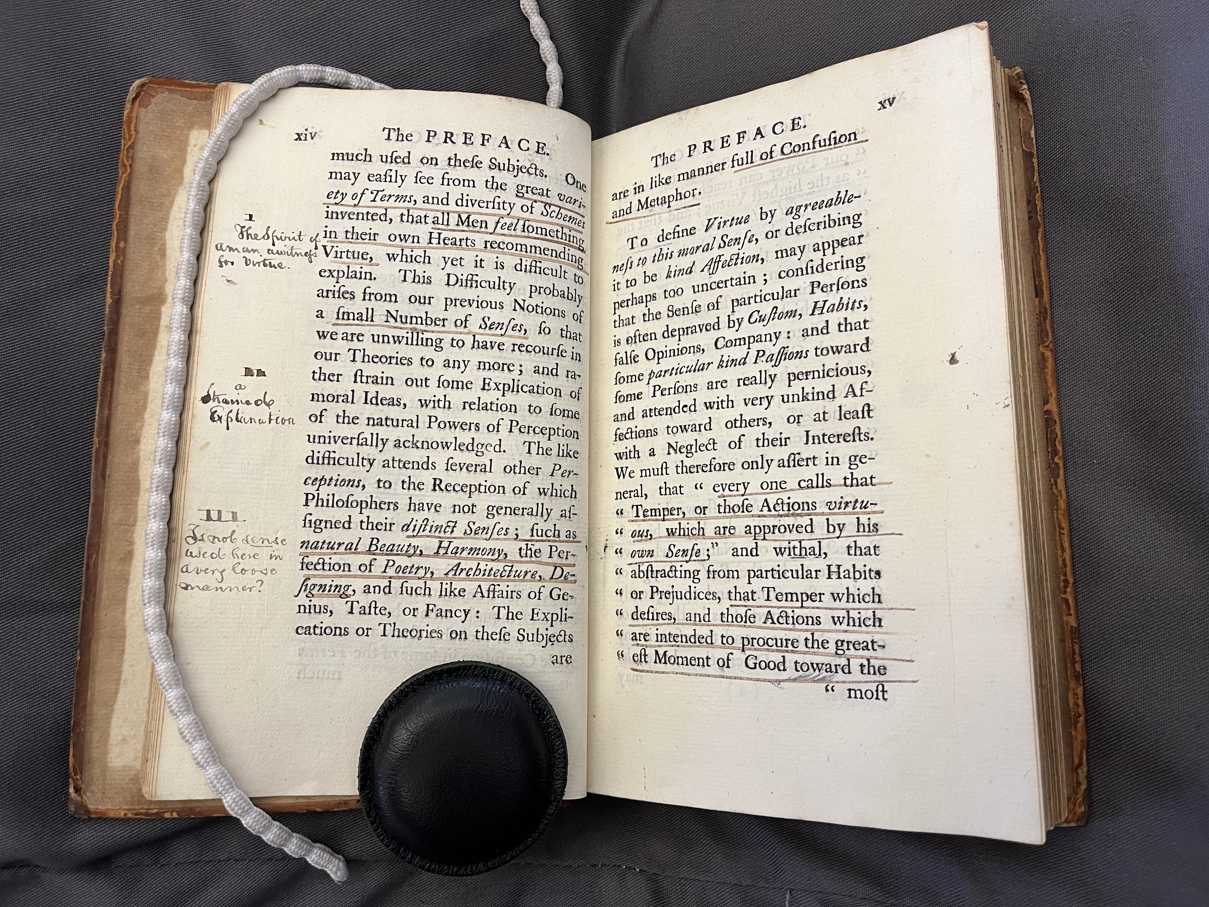 xiv
The PREFACE.
much uſed on theſe Subjects. One
may eaſily ſee from the great vari-
ety of Terms, and diverſity of Schemes
invented, that all Men feel ſomething
in their own Hearts recommending
Virtue, which yet it is difficult to
explain. This Difficulty probably
ariſes from our previous Notions of
a ſmall Number of Senſes, ſo that
we are unwilling to have recourſe in
our Theories to any more; and ra-
ther ſtrain out ſome Explication of
moral Ideas, with relation to ſome
of the natural Powers of Perception
univerſally acknowledged. The like
difficulty attends ſeveral other Per-
ceptions, to the Reception of which
Philoſophers have not generally aſ-
ſigned their diſtinct Senſes; ſuch as
natural Beauty, Harmony, the Per-
fection of Poetry, Architecture, De-
ſigning, and ſuch like Affairs of Ge-
nius, Taſte, or Fancy: The Expli-
cations or Theories on theſe Subjects
are
I
The Spirit of
a man a witness
for Virtue.
II
a
Explanation
III
Is not sense
used here in
a very loose
manner?
xv
The PREFACE.
are in like manner full of Confuſion
and Metaphor.
To define Virtue by agreeable-
neſs to this moral Senſe, or deſcribing
it to be kind Affection, may appear
perhaps too uncertain; conſidering
that the Senſe of particular Perſons
is often depraved by Cuſtom, Habits,
falſe Opinions, Company: and that
ſome particular kind Paſſions toward
ſome Perſons are really pernicious,
and attended with very unkind Af-
fections toward others, or at leaſt
with a Neglect of their Intereſts.
We muſt therefore only aſſert in ge-
neral, that “ every one calls that
“ Temper, or thoſe Actions virtu-
“ ous, which are approved by his
“ own Senſe;” and withal, that
“ abſtracting from particular Habits
“ or Prejudices, that Temper which
“ deſires, and thoſe Actions which
“ are intended to procure the great-
“ eſt Moment of Good toward the
“ moſt